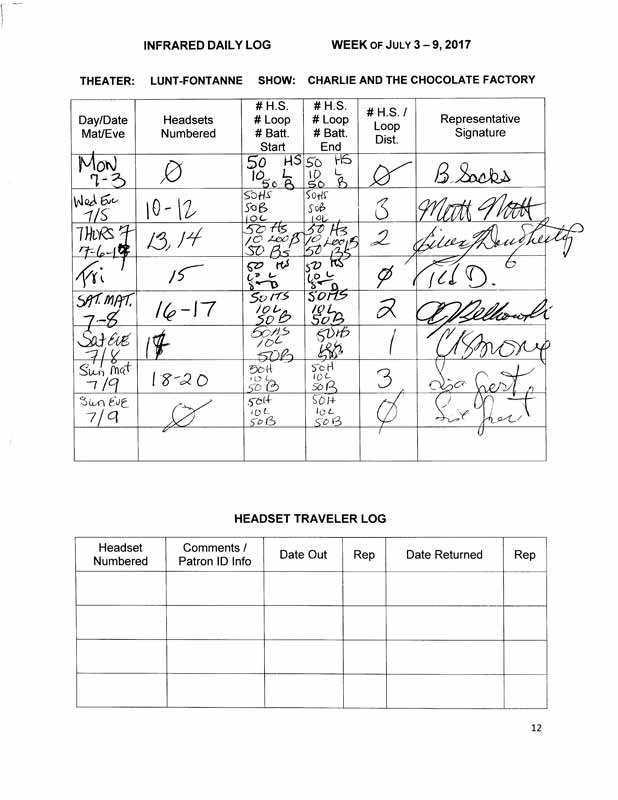 INFRARED DAILY LOG WEEK OF JULY 3 – 9, 2017
THEATER: LUNT-FONTANNE SHOW: CHARLIE AND THE CHOCOLATE FACTORY
Day/Date Mat/Eve Headsets Numbered # H.S. # Loop # Batt. Start # H.S. # Loop # Batt. End # H.S. / Loop Dist. Representative Signature
Mon 7-3 0 50 HS 10 L 50 B 50 HS 10 L 50 B 0 B Sacks
Wed Eve 7/5 10-12 50HS 50B 10L 50HS 50B 10L 3 Matt
THURS 7-6-17 13, 14 50 HS 10 LOOP 50 BS 50 HS 10 LOOP 50 BS 2 Dougherty
Fri 15 50 HS 50 HS 0 D.
SAT. MAT. 7-8 16-17 50HS 10L 50B 50HS 10L 50B 2 Belkowski
Sat EVE 7/8 18 50HS 10L 50B 50HS 50B 1
Sun Mat 7/9 18-20 50H 10L 50B 50H 10L 50B 3 Lisa
Sun Eve 7/9 0 50H 10L 50B 50H 10L 50B 0
HEADSET TRAVELER LOG
Headset Numbered Comments / Patron ID Info Date Out Rep Date Returned Rep
12